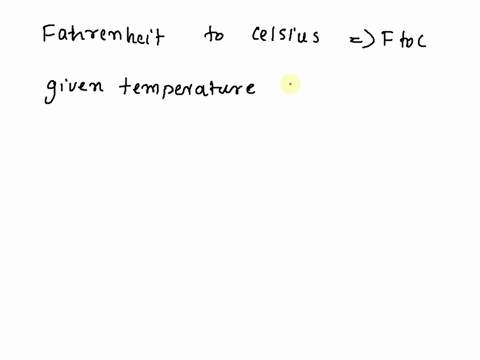 Fahrenheit to celsius => F to c
given temperature